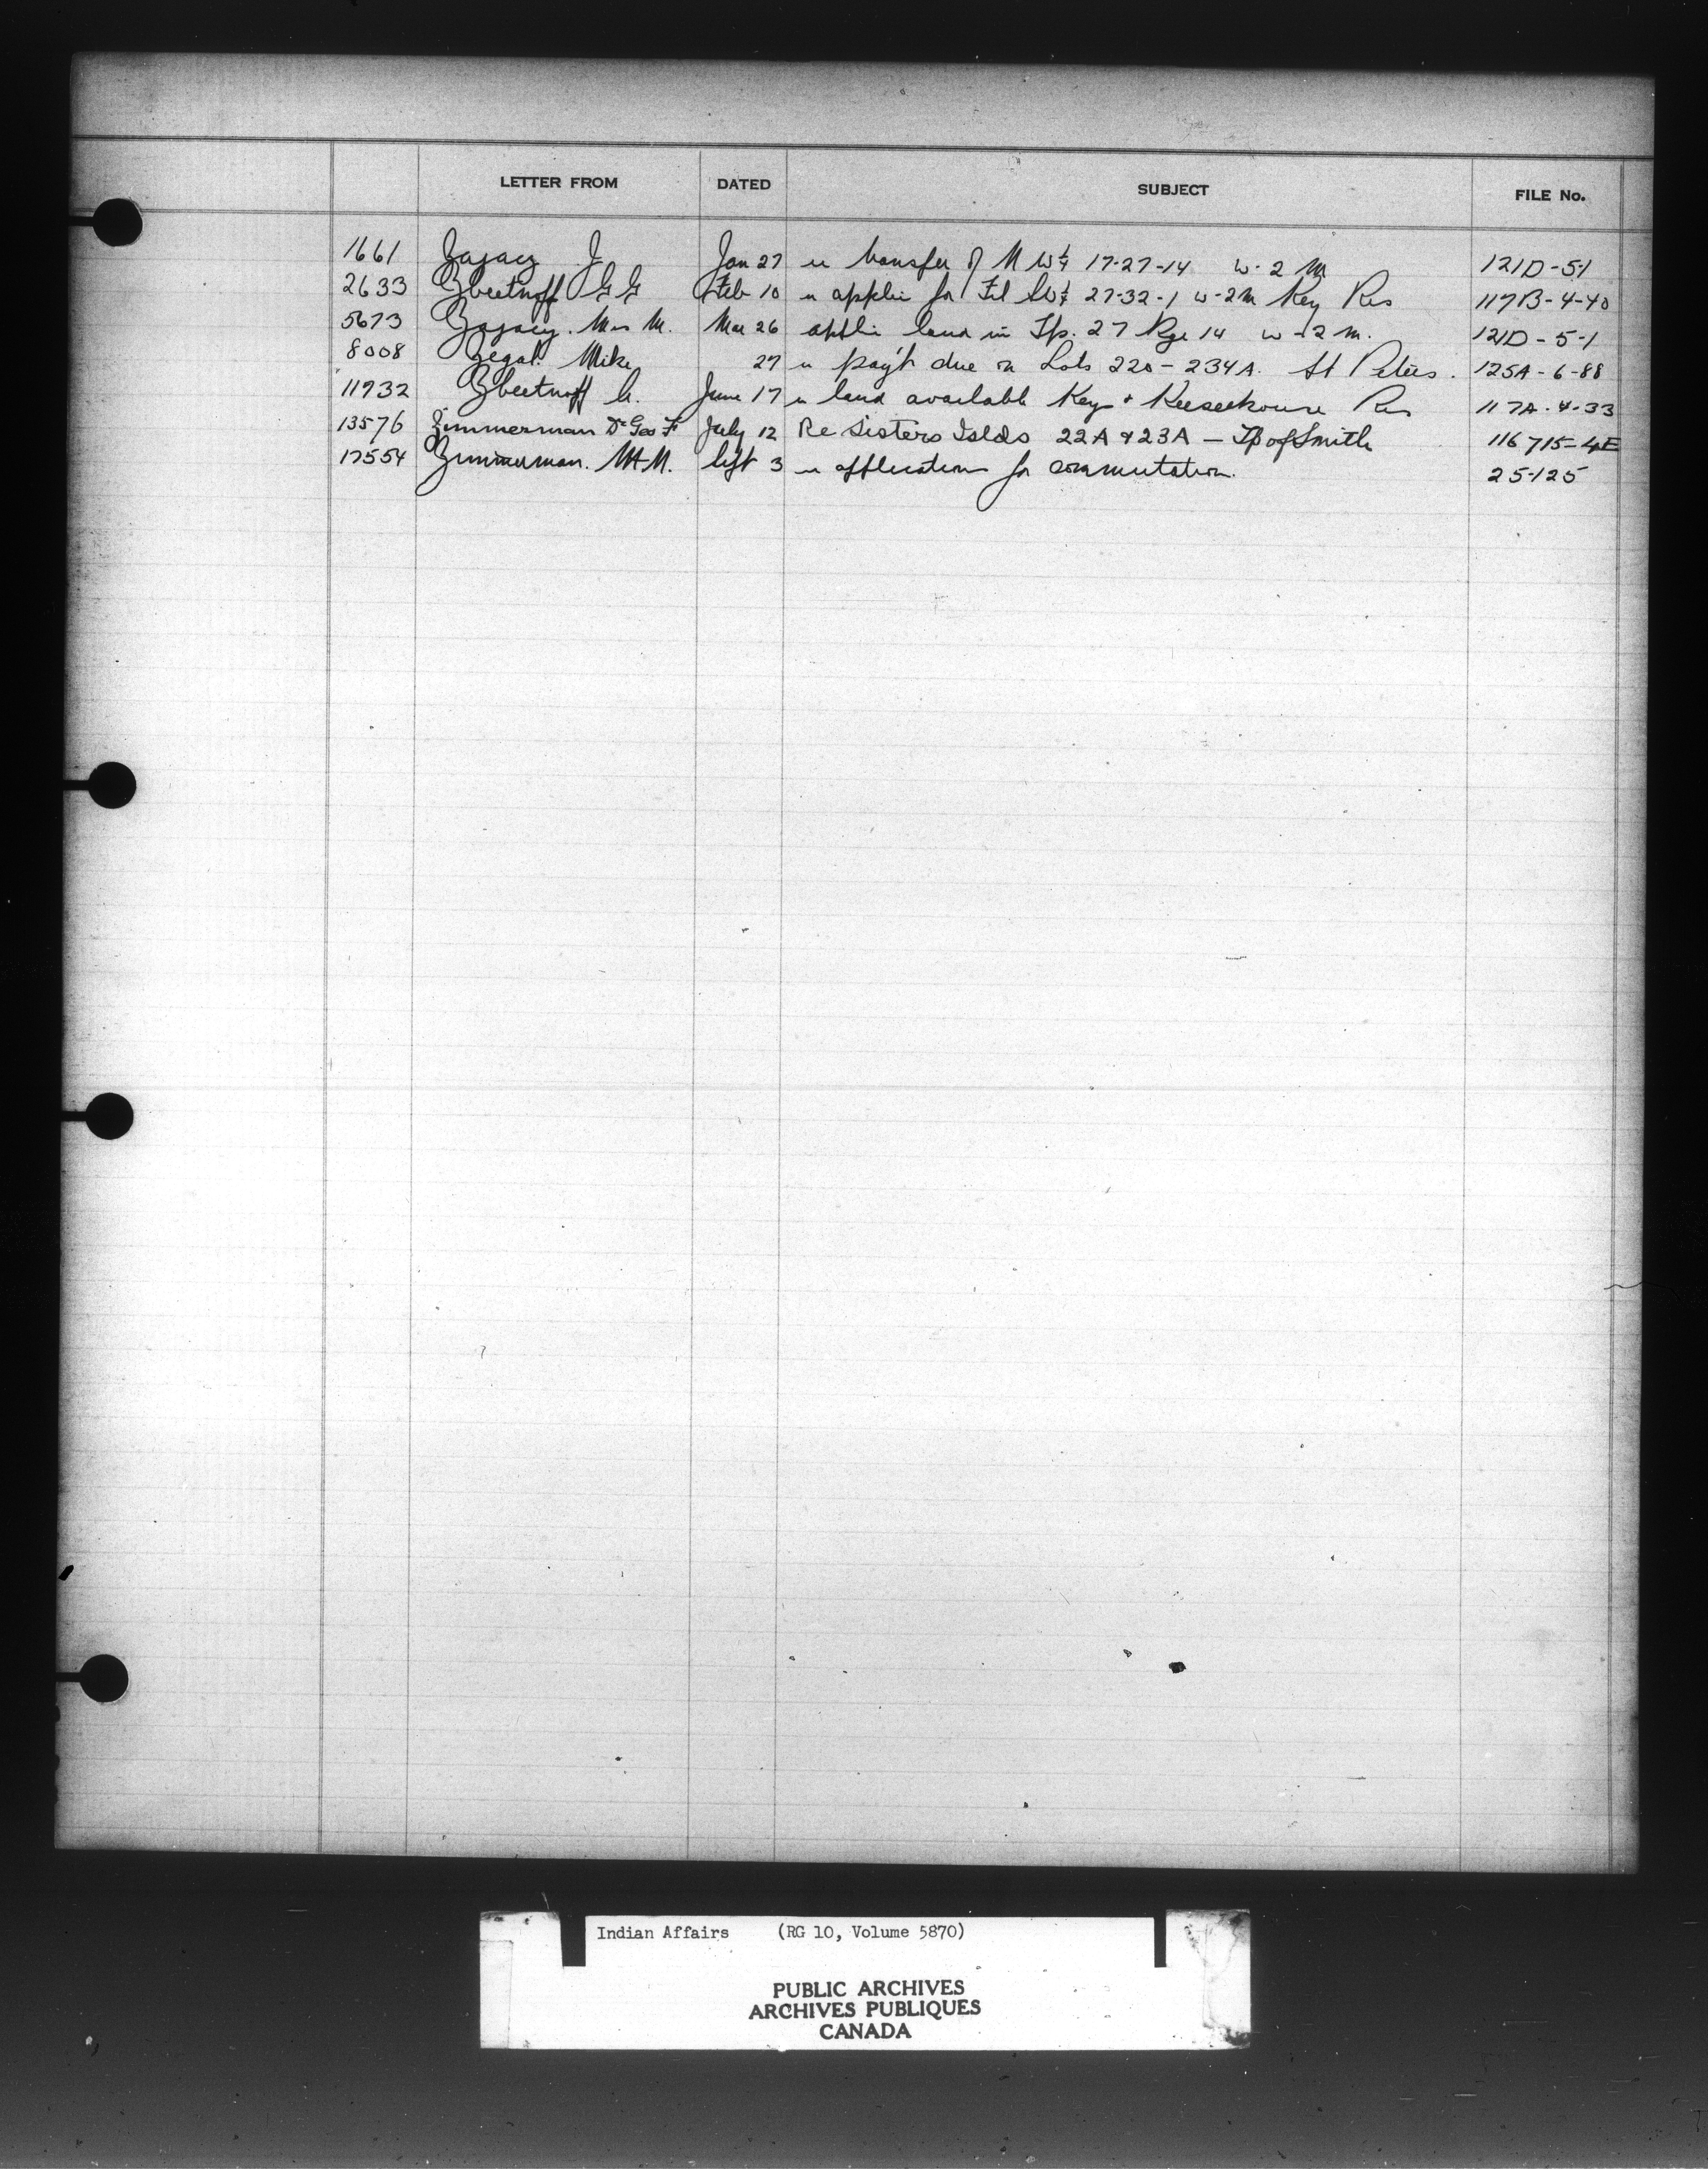 LETTER FROM DATED SUBJECT FILE No.
1661 Zajacz J. Jan 27 re transfer of N W¼ 17-27-14 W-2 M 121D-5-1
2633 Zbeetnoff G G Feb 10 re applic for SW¼ 27-32-1 W-2M Key Res 117B-4-40
5673 Zajacz. Mrs M. Mar 26 applic land in Tp. 27 Rge 14 W-2 M. 121D-5-1
8008 Zegal. Mike 27 re pay't due on Lots 220-234A. St Peters. 125A-6-88
11932 Zbeetnoff June 17 re land available Key + Keeseekouse Res 117A-4-33
13576 Zimmerman Dr Geo F July 12 Re Sisters Islds 22A & 23A — Tp of Smith 116715-4E
17554 Zimmerman. M. Sept 3 re application for commutation. 25-125
Indian Affairs (RG 10, Volume 5870)
PUBLIC ARCHIVES
ARCHIVES PUBLIQUES
CANADA